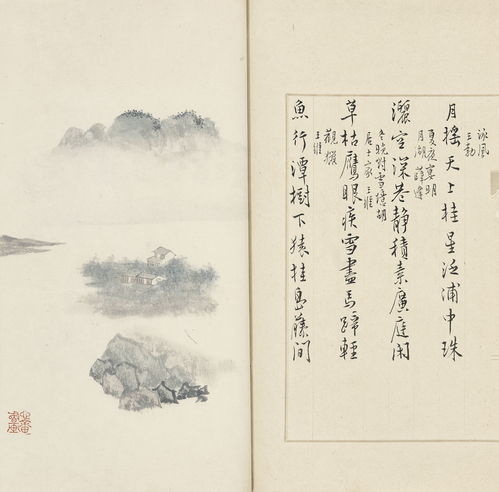 詠風
王勃
月搖天上桂星泛浦中珠
夏夜宴明
月湖薛逢
灑空深巷靜積素廣庭閑
冬晚對雪憶胡
居士家王維
草枯鷹眼疾雪盡馬蹄輕
觀獵
王維
魚行潭樹下猿挂島藤間